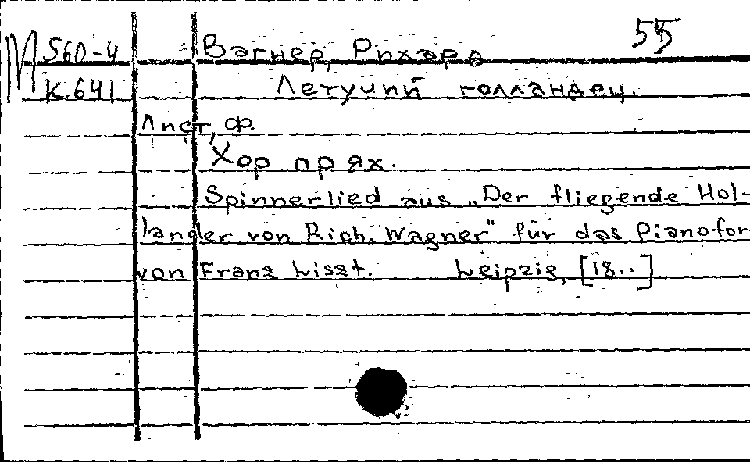 55
М 560-4 Вагнер, Рихард
К.641 Летучий голландец.
Лист, Ф.
Хор прях.
Spinnerlied aus „Der fliegende Hol-
länder von Rich. Wagner" für das Pianofor
von Franz Liszt. Leipzig, [18..]